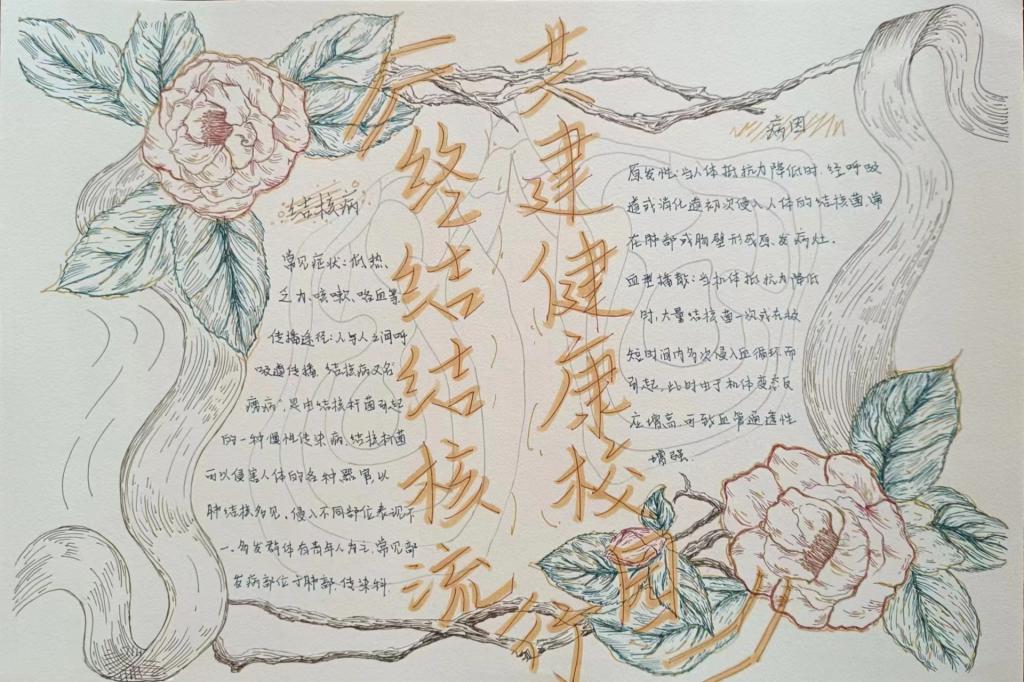 「终结结核流行
共建健康校园」
结核病
常见症状：低热、
乏力、咳嗽、咯血等
传播途径：人与人之间呼
吸道传播 结核病又名
“痨病”，是由结核杆菌引起
的一种慢性传染病，结核杆菌
可以侵害人体的各种器官，以
肺结核多见，侵入不同部位表现不
一，多发群体有青年人为主，常见部
发病部位于肺部，传染科.
病因
原发性：当人体抵抗力降低时，经呼吸
道或消化道初次侵入人体的结核菌，常
在肺部或胸壁形成原发病灶.
血型播散：当机体抵抗力降低
时，大量结核菌一次或在极
短时间内多次侵入血循环而
引起，此时由于机体变态反
应增高，可致血管通透性
增强.